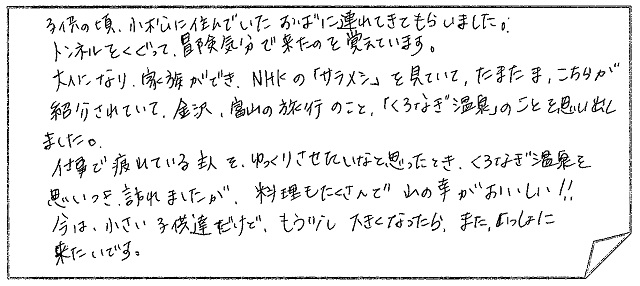 子供の頃、小松に住んでいたおばに連れてきてもらいました。
トンネルをくぐって、冒険気分で来たのを覚えています。
大人になり、家族ができ、NHKの「サラメシ」を見ていて、たまたま、こちらが
紹介されていて、金沢、富山の旅行のこと、「くろなぎ温泉」のことを思い出し
ました。
仕事で疲れている主人を、ゆっくりさせたいなと思ったとき、くろなぎ温泉を
思いつき、訪れましたが、料理もたくさんで山の幸がおいしい!!
今は、小さい子供達だけど、もう少し大きくなったら、また、いっしょに
来たいです。